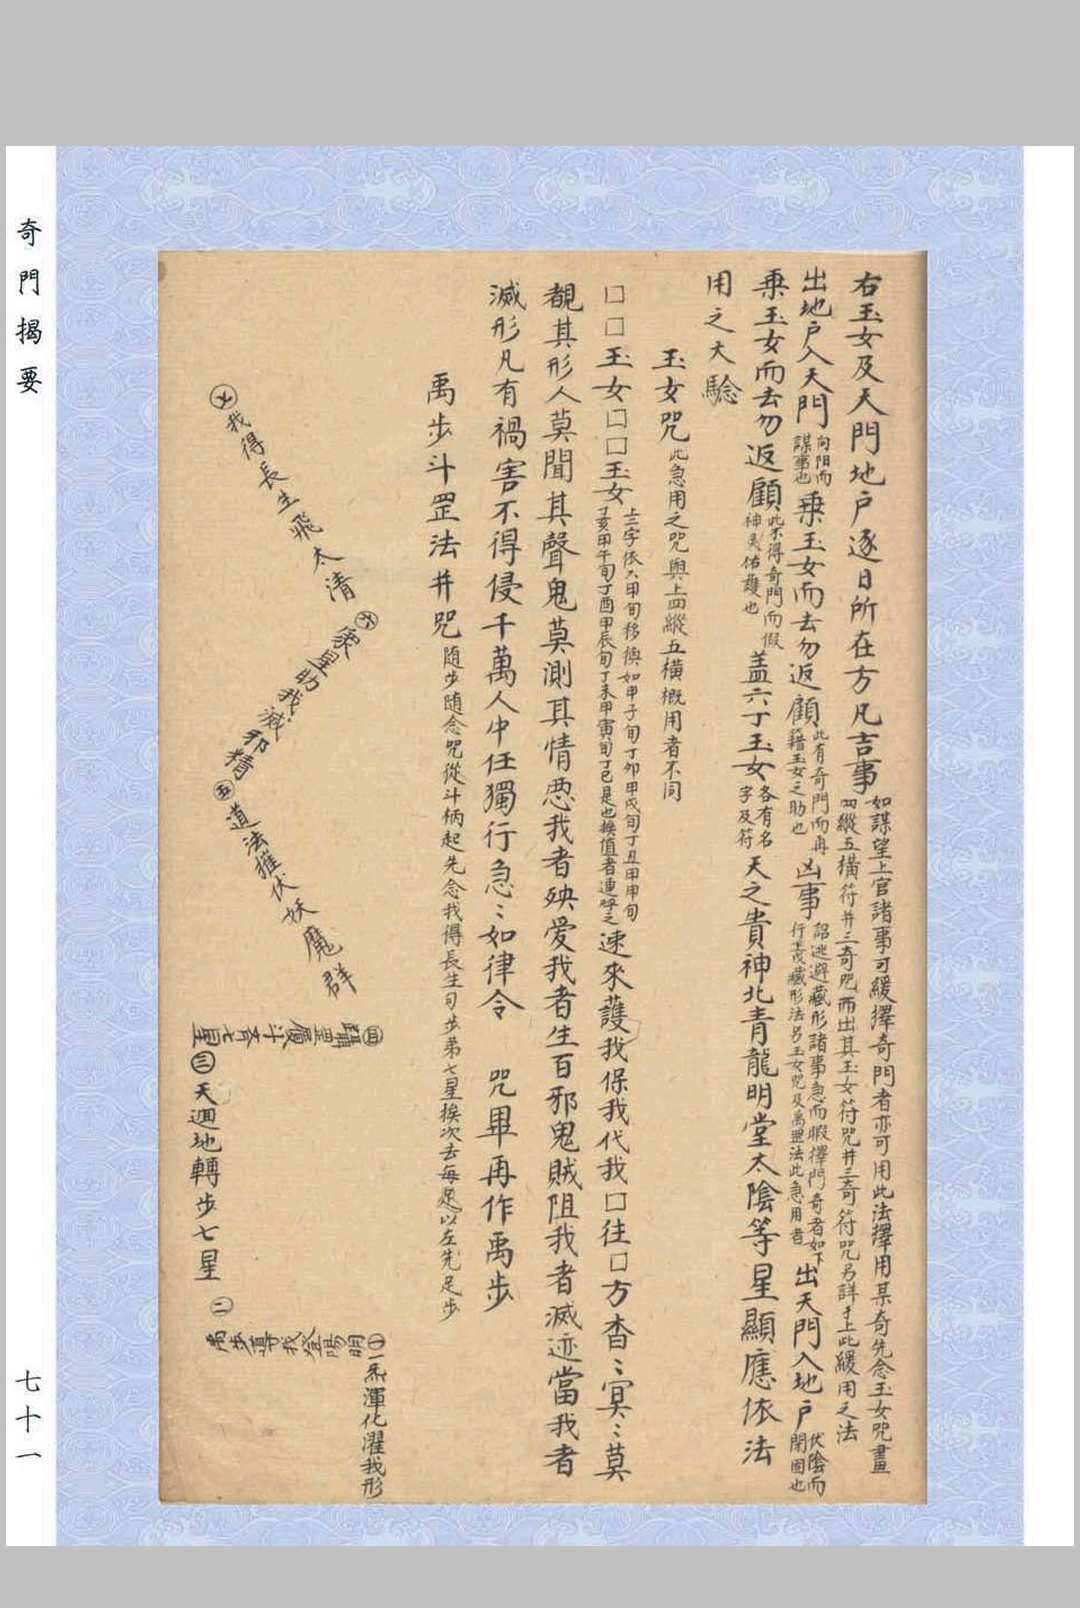 右玉女及天門地戶逐日所在方凡吉事如謀望上官諸事可緩擇奇門者亦可用此法擇用某奇先念玉女咒畫四縱五橫符并三奇咒而出其玉女符咒并三奇符咒另詳于上此緩用之法
出地戶入天門向陽而謀事也乘玉女而去勿返顧此有奇門而再藉玉女之助也凶事詔逃避藏形諸事急而暇擇門奇者如下行藏形法另玉女咒及禹罡法此急用者出天門入地戶伏陰而閉固也
乘玉女而去勿返顧此不得奇門而假神灵佑護也蓋六丁玉女各有名字及符天之貴神北青龍明堂太陰等星顯應依法
用之大驗
玉女咒此急用之咒與上四縱五橫概用者不同
□□玉女□□玉女上二字依六甲旬移換如甲子旬丁卯甲戌旬丁丑甲申旬丁亥甲午旬丁酉甲辰旬丁未甲寅旬丁巳是也换值者連呼之速來護我保我代我□往□方杳〻冥〻莫
覩其形人莫聞其聲鬼莫測其情恶我者殃愛我者生百邪鬼賊阻我者滅迹當我者
滅形凡有禍害不得侵千萬人中任獨行急〻如律令 咒畢再作禹步
禹步斗罡法并咒随步随念咒從斗柄起先念我得長生句步第七星挨次去每足以左先足步
㊀一炁渾化濯我形
㊁禹步導我登陽明
㊂天迴地轉步七星
㊃躡罡履斗齊七星
㊄道法摧伏妖魔群
㊅衆星助我滅邪精
㊆我得長生飛太清
奇門揭要
七十一